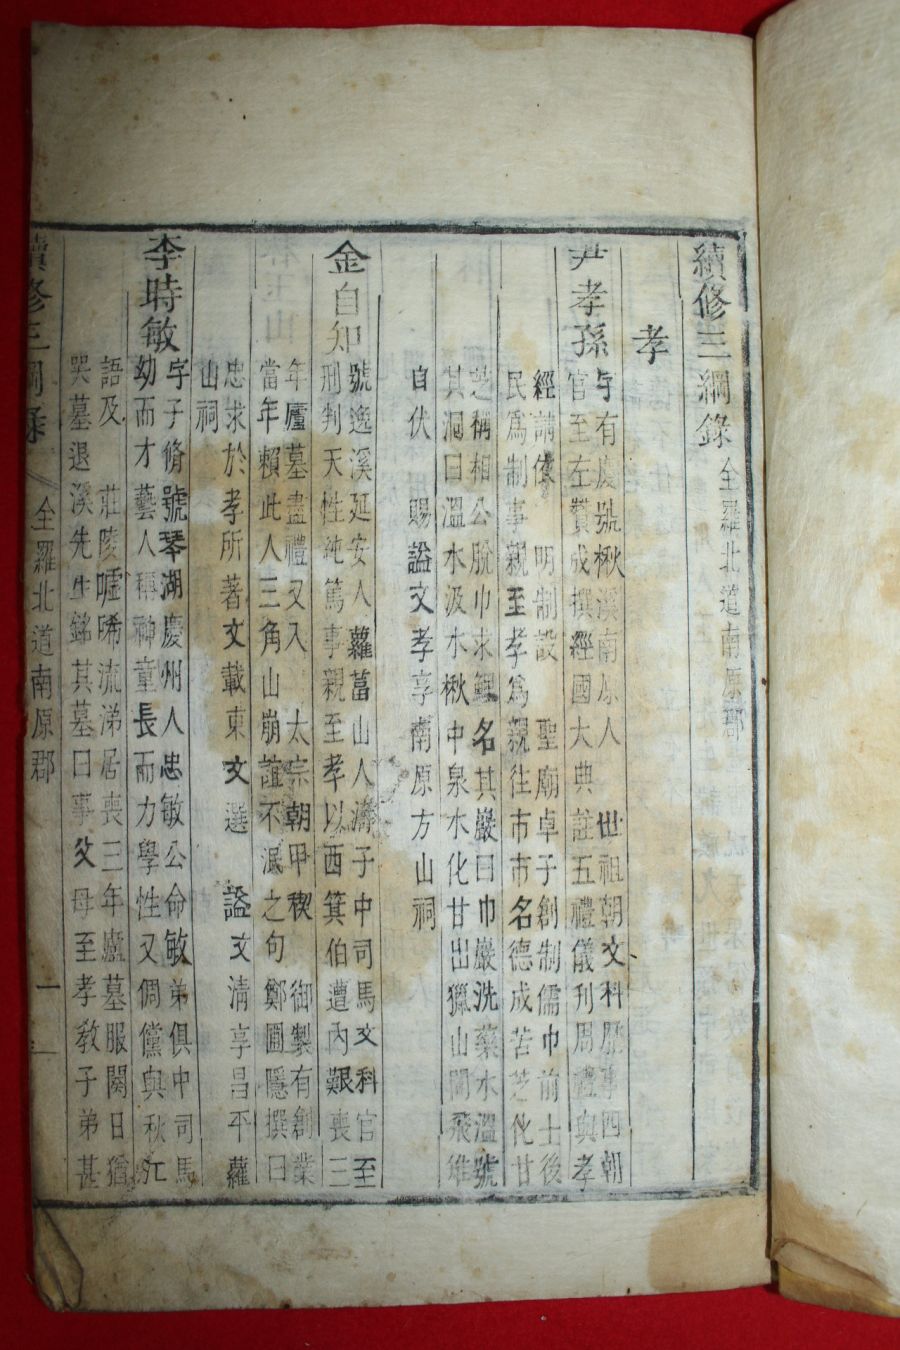 續修三綱錄 全羅北道南原郡
孝
尹孝孫 字有慶號楸溪南原人 世祖朝文科歷事四朝
官至左贊成撰經國大典註五禮儀刊周禮與孝
經請倣 明制設 聖廟卓子創制儒巾前士後
民爲制事親至孝爲親往市市名德成苦芝化甘
芝稱相公脫巾求鯉名其巖曰巾巖洗藥水溫號
其洞曰溫水汲水楸中泉水化甘出獵山閒飛雉
自伏 賜謚文孝享南原方山祠
金自知 號逸溪延安人蘿葍山人濤子中司馬文科官至
刑判天性純篤事親至孝以西箕伯遭內艱喪三
年廬墓盡禮又入 太宗朝甲稧 御製有創業
當年賴此人三角山崩誼不泯之句鄭圃隱撰曰
忠求於孝所著文載東文選 謚文清享昌平蘿
山祠
李時敏 字子脩號琴湖慶州人忠敏公命敏弟俱中司馬
幼而才藝人稱神童長而力學性又倜儻與秋江
語及 莊陵噓唏流涕居喪三年廬墓服闋日猶
哭墓退溪先生銘其墓曰事父母至孝敎子弟甚
續修三綱錄 全羅北道南原郡 一